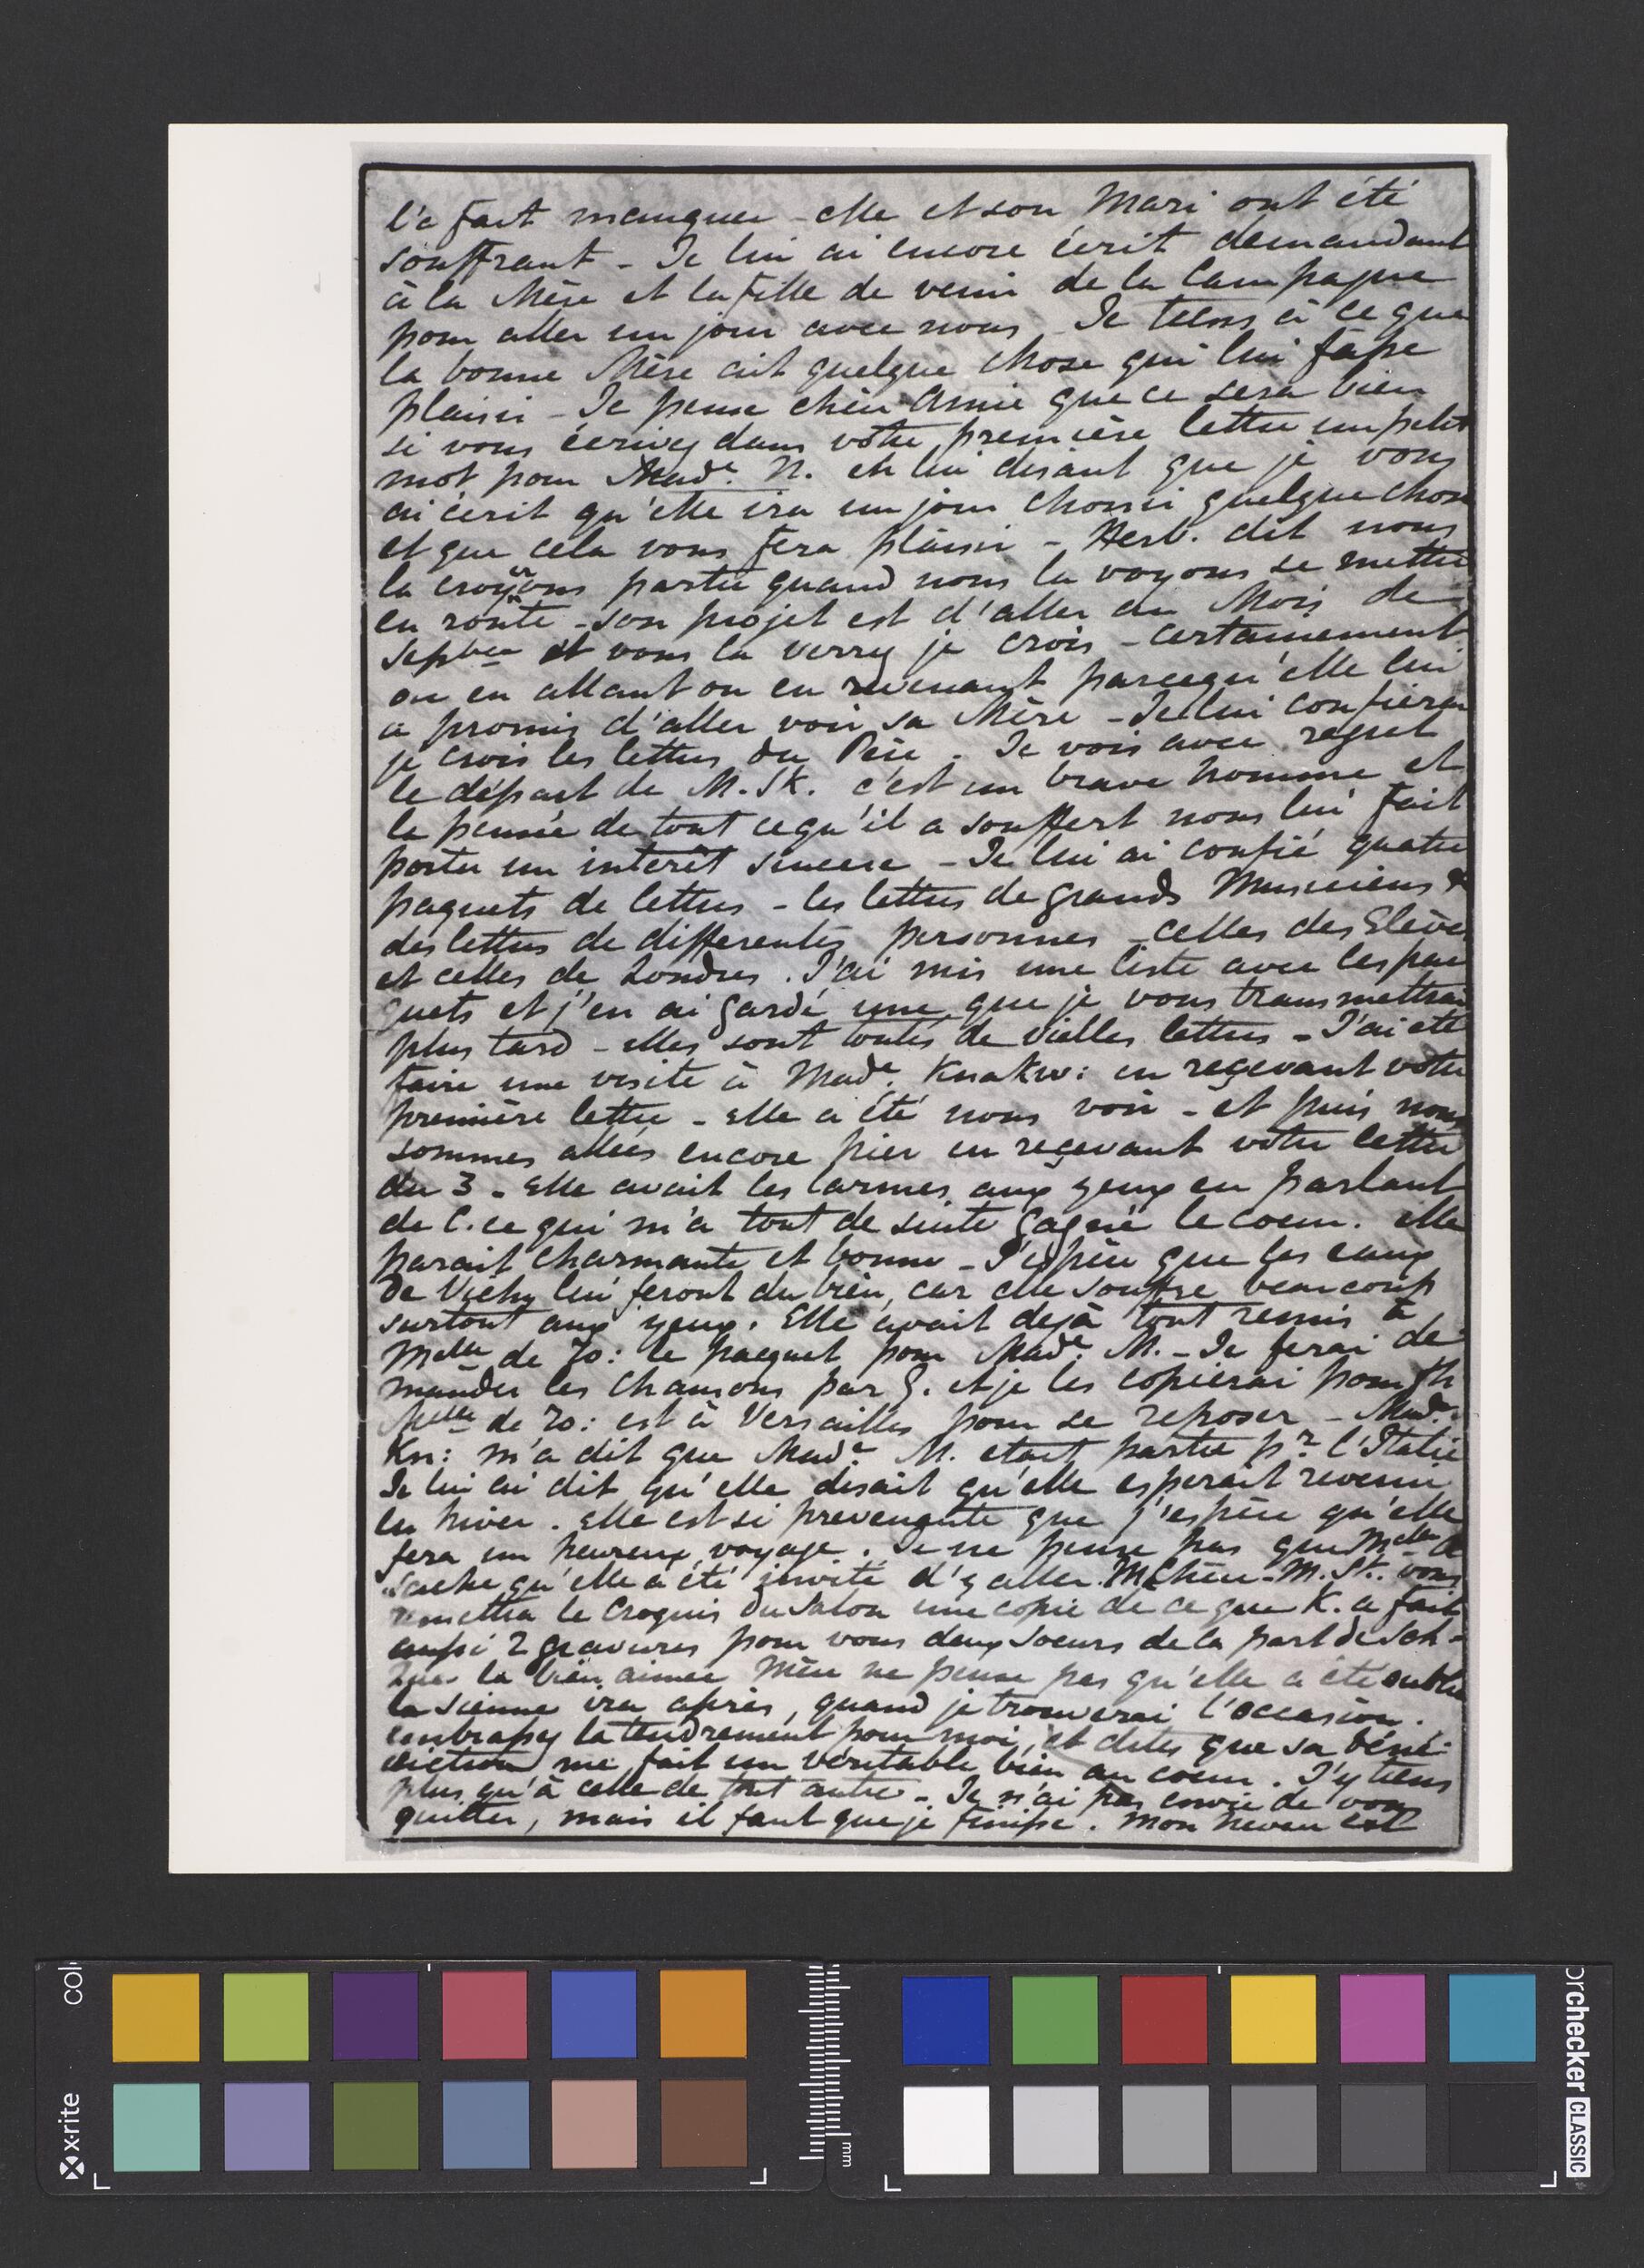 l'a fait manquer - elle et son Mari ont été
souffrant - Je lui ai encore écrit demandant
à la Mère et la fille de venir de la Campagne
pour aller un jour avec nous - Je tiens à ce que
la bonne Mère ait quelque chose qui lui fasse
plaisir - Je pense chère Amie que ce sera bien
si vous écrivez dans votre première lettre un petit
mot pour Made. N. en lui disant que je vous
ai écrit qu'elle ira un jour choisir quelque chose
et que cela vous fera plaisir - Herb. dit nous
la croyons partie quand nous la voyons se mettre
en route - son projet est d'aller au Mois de
Septbre et vous la verrez je crois - certainement
ou en allant ou en revenant parcequ'elle lui
a promis d'aller voir sa Mère - Je lui confierai
je crois les lettres du Père. Je vois avec regret
le départ de M. St. c'est un brave homme et
la pensée de tout cequ'il a souffert nous lui fait
porter un interêt sincere - Je lui ai confié quatre
paquets de lettres - les lettres de grands Musiciens &
des lettres de differentes personnes - celles des Elèves
et celles de Londres. J'ai mis une liste avec les pac
quets et j'en ai gardé une que je vous transmettrai
plus tard - elles sont toutes de vielles lettres - J'ai été
faire une visite à Made. Knakw: en reçevant votre
première lettre - Elle a été nous voir - et puis nous
sommes allées encore hier en reçevant votre lettre
du 3 - Elle avait les larmes aux yeux en parlant
de C. ce qui m'a tout de suite gagné le coeur. elle
parait charmante et bonne - J'espère que les eaux
de Vichy lui feront du bien, car elle souffre beaucoup
surtout aux yeux. Elle avait dejà tout remis à
Melle de Ro: le pacquet pour Made. M. - Je ferai de
mander les chansons par G. et je les copierai pour
Melle de Ro: est à Versailles pour se reposer - Made.
Kn: m'a dit que Made. M. etait partie pr. l'Italie
Je lui ai dit qu'elle disait qu'elle esperait revenir
en hiver. Elle est si prevenante que j'espère qu'elle
fera un heureux voyage. Je ne pense pas que Melle de
sache qu'elle a été invité d'y aller. M. St. vous
remettra le Croquis du Salon une copie de ce que K. a fait
aussi 2 gravures pour vous deux soeurs de la part de Sch -
Que la bien aimée Mère ne pense pas qu'elle a été oublié
la sienne ira après, quand je trouverai l'occasion.
embrassez la tendrement pour moi, et dites que sa béné-
diction me fait un véritable bien au coeur. J'y tiens
plus qu'à celle de tout autre - Je n'ai pas envie de vous
quitter, mais il faut que je finisse. Mon neveu est